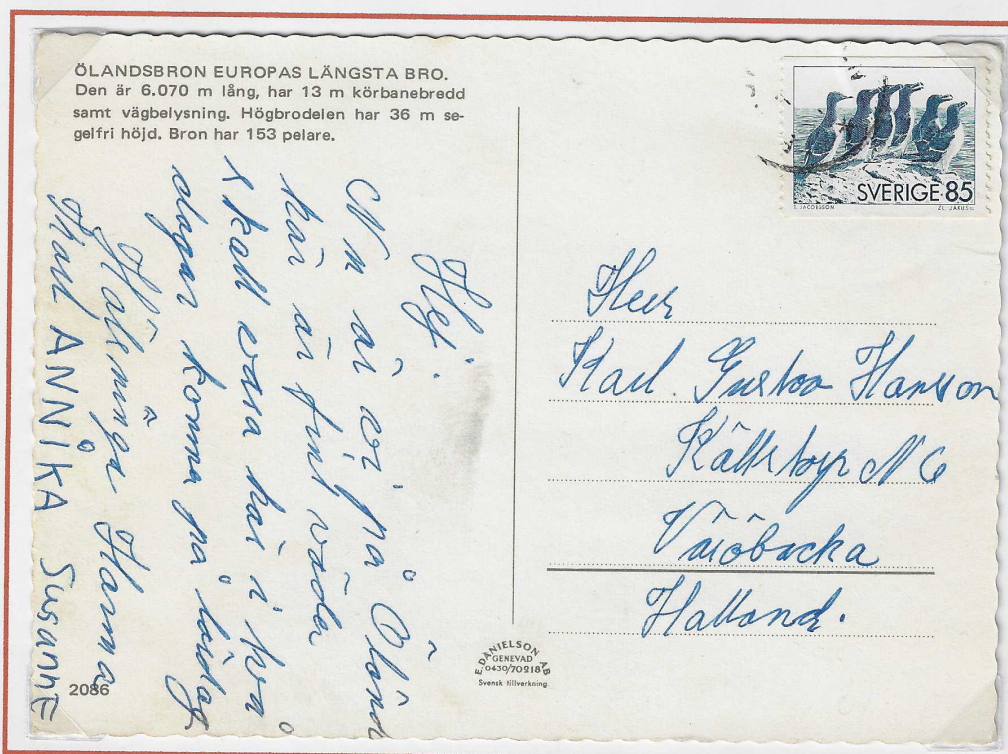 ÖLANDSBRON EUROPAS LÄNGSTA BRO.
Den är 6.070 m lång, har 13 m körbanebredd
samt vägbelysning. Högbrodelen har 36 m se-
gelfri höjd. Bron har 153 pelare.
Hej.
Nu är vi på Öland
här är fint väder
skall vara här i två
dagar komma på lördag
Hälsninga Hanna
Karl ANNIKA SusannE
2086
E. DANIELSON AB
GENEVAD
0430/70218
Svensk tillverkning.
SVERIGE 85
S. JACOBSSON
ZL. JAKUS
Herr
Karl. Gustav Hansson
Källstorp N6
Väröbacka
Halland.